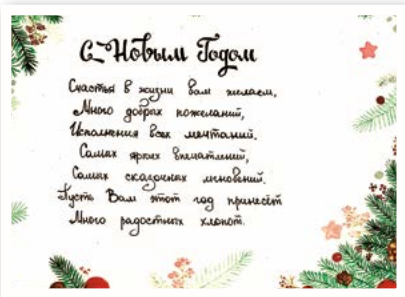 С Новым Годом
Счастья в жизни вам желаем,
Много добрых пожеланий,
Исполнения всех мечтаний.
Самых ярких впечатлений,
Самых сказочных мгновений.
Пусть Вам этот год принесёт
Много радостных хлопот.